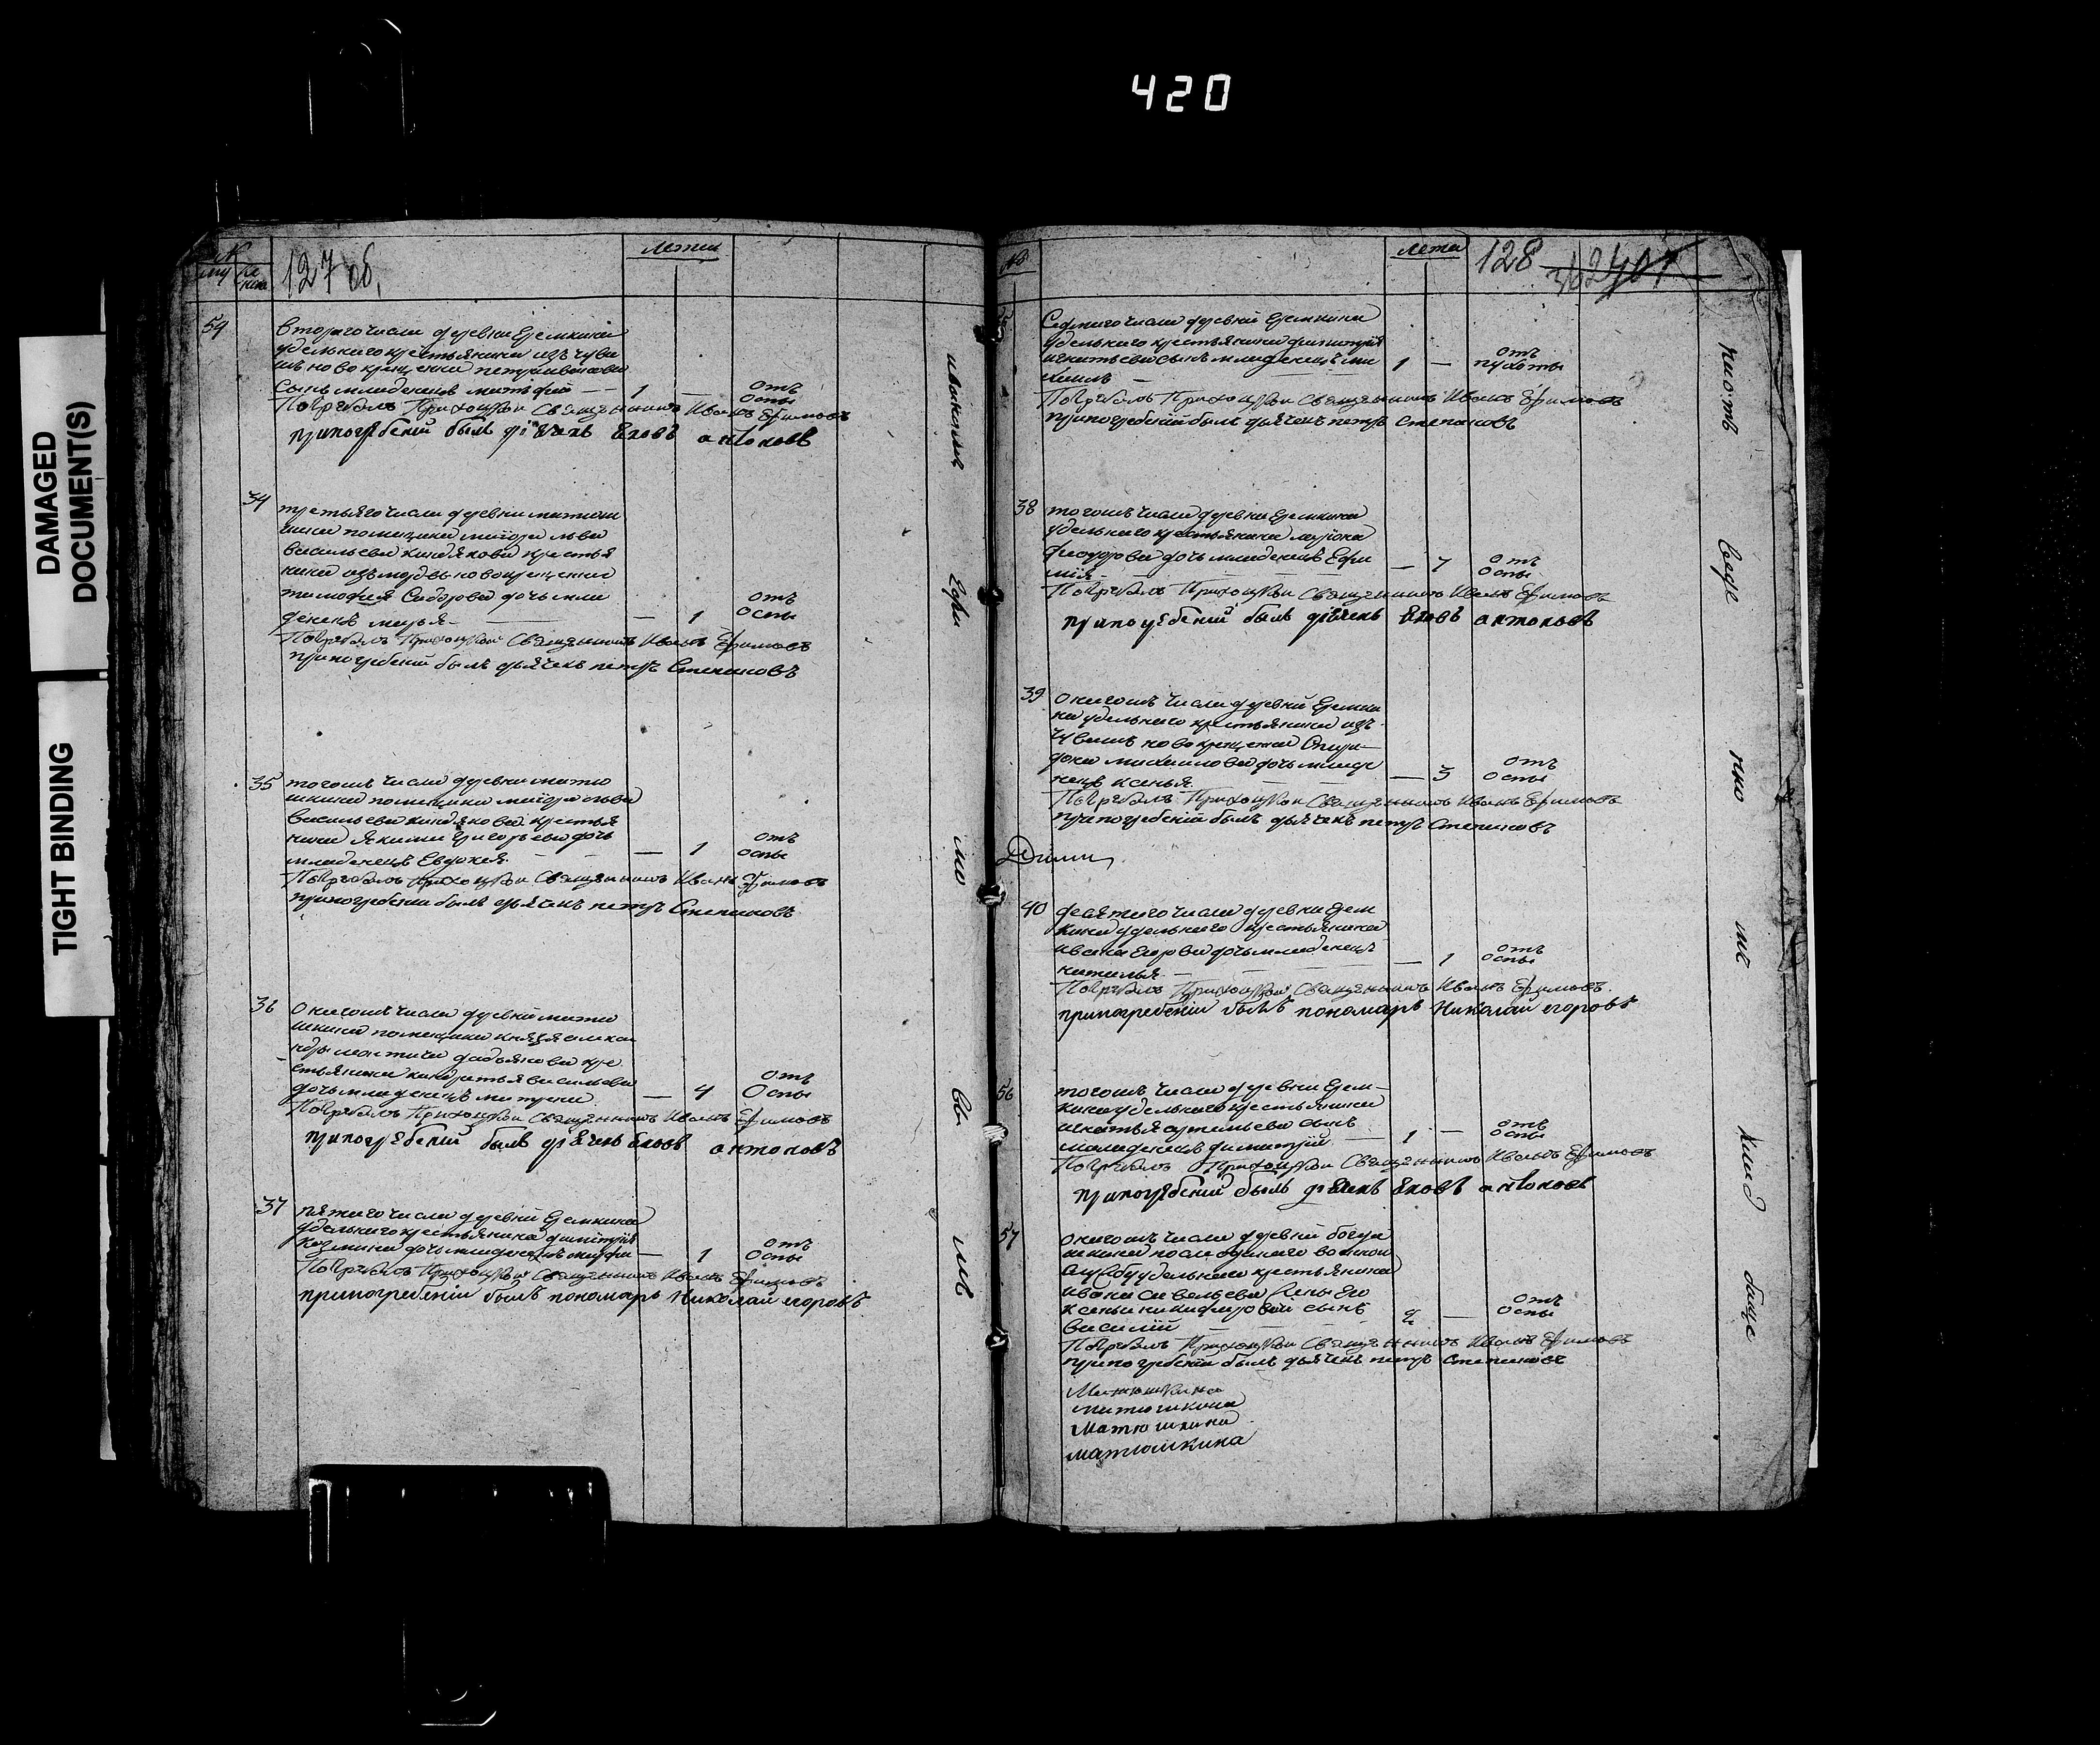 420
DAMAGED
DOCUMENT(S)
TIGHT BINDING
№
127 об.
Лета
54
второгочисла деревни Еремкина
удельнаго крестьянина изъ чува
шъ новокрещенна петра иванова
сынъ младенецъ матфей — 1 — отъ оспы
Погребалъ Приходской Священникъ Иванъ Ефимовъ
припогребении былъ дьячекъ Яковъ антоновъ
34
третьяго числа деревни матюш
кина помещика маиора льва
васильева киндякова крестья
нина изъ мордвы новокрещенна
тимофея Сидорова дочь мла
денецъ марья — — 1 отъ оспы
Погребалъ Приходской Священникъ Иванъ Ефимовъ
припогребении былъ дьячекъ петръ Степановъ
35
тогожъ числа деревни матю
шкина помещика маиора льва
васильева киндякова крестья
нина якима григорьева дочь
младенецъ Евдокея — — 1 отъ оспы
Погребалъ Приходской Священникъ Иванъ Ефимовъ
припогребении былъ дьячекъ петръ Степановъ
36
Онагожъ числа деревни матю
шкина помещика князя алекса
ндры дадьянова кре
стьянина кандратья васильева
дочь младенецъ матрена — 4 отъ Оспы
Погребалъ Приходской Священникъ Иванъ Ефимовъ
припогребении былъ дьячекъ Яковъ антоновъ
37
пятаго числа деревни Еремкина
удельнаго крестьянина димитрия
козмина дочь младенецъ — 1 отъ Оспы
Погребалъ Приходской Священникъ Иванъ Ефимовъ
припогребении былъ пономарь Николай егоровъ
Ефи
мо
въ
№
Лета
128
55
Седмаго числа деревни Еремкина
удельнаго крестьянина димитрия
игнатьева сынъ младенецъ ми
хаилъ — 1 — отъ
Погребалъ Приходской Священникъ Иванъ Ефимовъ
припогребении былъ дьячекъ петръ степановъ
38
тогожъ числа деревни Еремкина
удельнаго крестьянина
феодорова дочь младенецъ Ефи
мия — — 7 отъ Оспы
Погребалъ Приходской Священникъ Иванъ Ефимовъ
припогребении былъ дьячекъ Яковъ антоновъ
39
Онагожъ числа деревни Еремки
на удельнаго крестьянина изъ
чувашъ новокрещенна Спири
дона михаилова дочь младе
нецъ ксенья — — 3 отъ Оспы
Погребалъ Приходской Священникъ Иванъ Ефимовъ
припогребении былъ дьячекъ петръ Степановъ
40
десятаго числа деревни Ерем
кина удельнаго крестьянина
ивана Егорова дочь младенецъ
наталья — — 1 отъ Оспы
Погребалъ Приходской Священникъ Иванъ Ефимовъ.
припогребении былъ пономарь Николай егоровъ
56
тогожъ числа деревни Ерем
кина удельнаго крестьянина
игнатья артемьева сынъ
младенецъ димитрий — 1 — отъ Оспы
Погребалъ Приходской Священникъ Иванъ Ефимовъ
припогребении былъ дьячекъ Яковъ антоновъ
57
онагожъ числа деревни
шкина посл воинской
службу удельнаго крестьянина
ивана савельева жены Его
ксеньи никифоровой сынъ
василий 2 — отъ Оспы
Погребалъ Приходской Священникъ Иванъ Ефимовъ
припогребении былъ дьячекъ петръ Степановъ
Матюшкина
матюшкина
Матюшкина
матюшкина